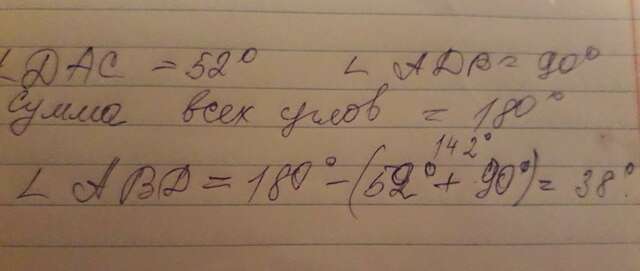 ∠DAC = 52° ∠ADB = 90°
Сумма всех углов = 180°
142°
∠ABD = 180° - (52° + 90°) = 38°.